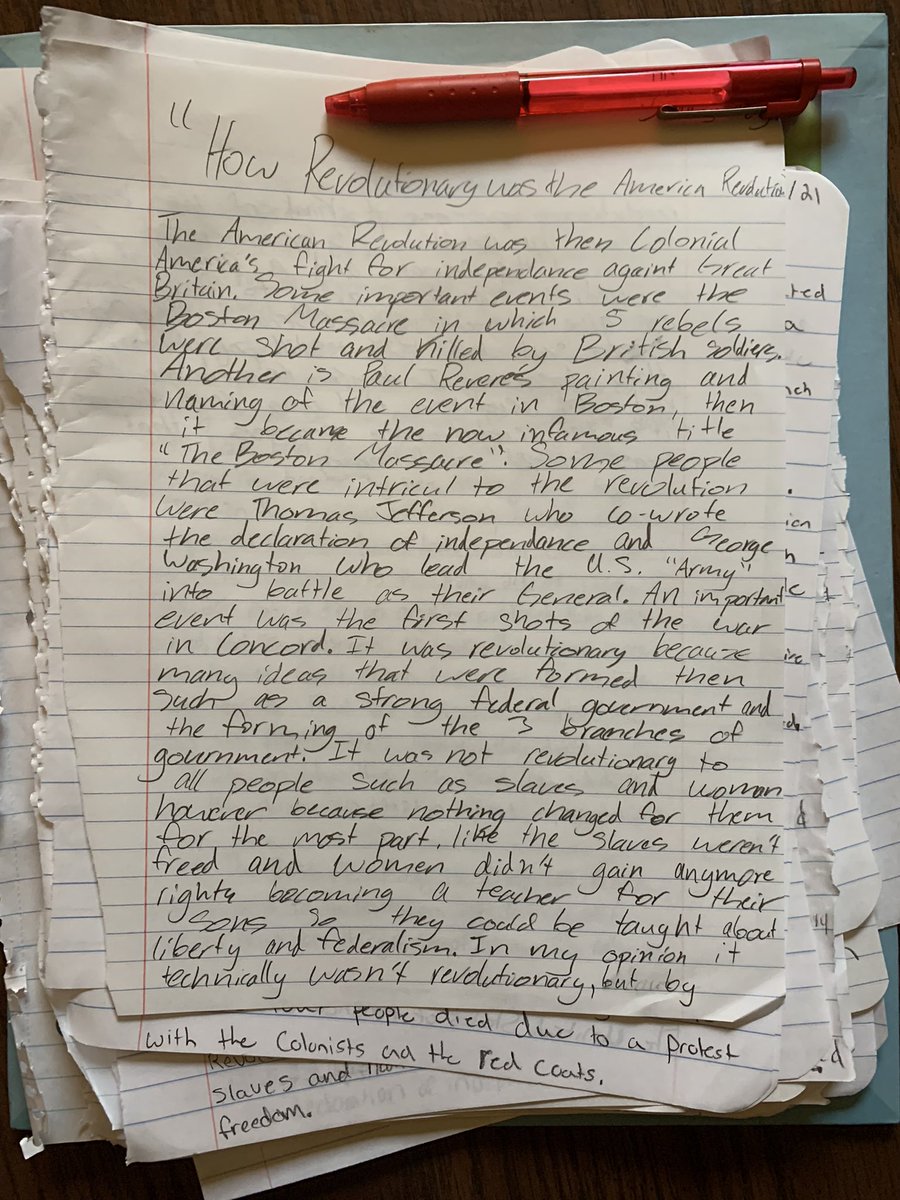 "How Revolutionary was the America Revolution
/21
The American Revolution was then Colonial
America's fight for independance againt Great
Britain. Some important events were the
Boston Massacre in which 5 rebels
were shot and killed by British soldiers.
Another is Paul Revere's painting and
naming of the event in Boston, then
it became the now infamous title
"The Boston Massacre". Some people
that were intricul to the revolution
were Thomas Jefferson who co-wrote
the declaration of independance and George
Washington who lead the U.S. "Army"
into battle as their General. An important
event was the first shots of the war
in Concord. It was revolutionary because
many ideas that were formed then
such as a strong federal government and
the forming of the 3 branches of
government. It was not revolutionary to
all people such as slaves and woman
however because nothing changed for them
for the most part, like the slaves weren't
freed and women didn't gain anymore
rights becoming a teacher for their
sons so they could be taught about
liberty and federalism. In my opinion it
technically wasn't revolutionary, but by
people died due to a protest
with the Colonists and the red coats.
slaves and
freedom.
14